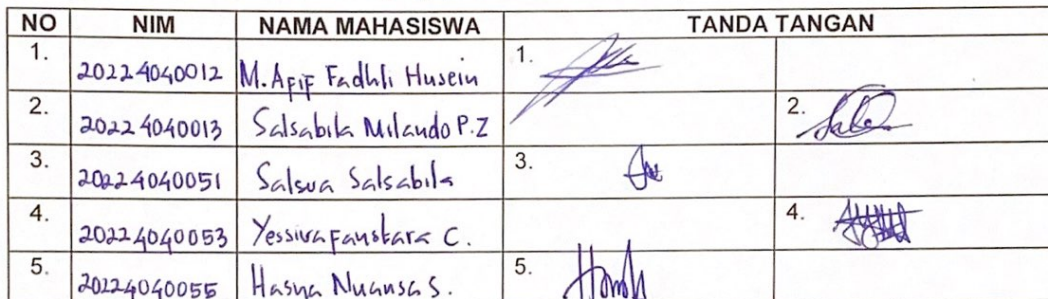 NO NIM NAMA MAHASISWA TANDA TANGAN
1. 20224040012 M. Afif Fadhli Husein 1.
2. 20224040013 Salsabila Milando P.Z 2.
3. 20224040051 Salsva Salsabila 3.
4. 20224040053 C. 4.
5. 20224040055 Hasna Nuansa S. 5.